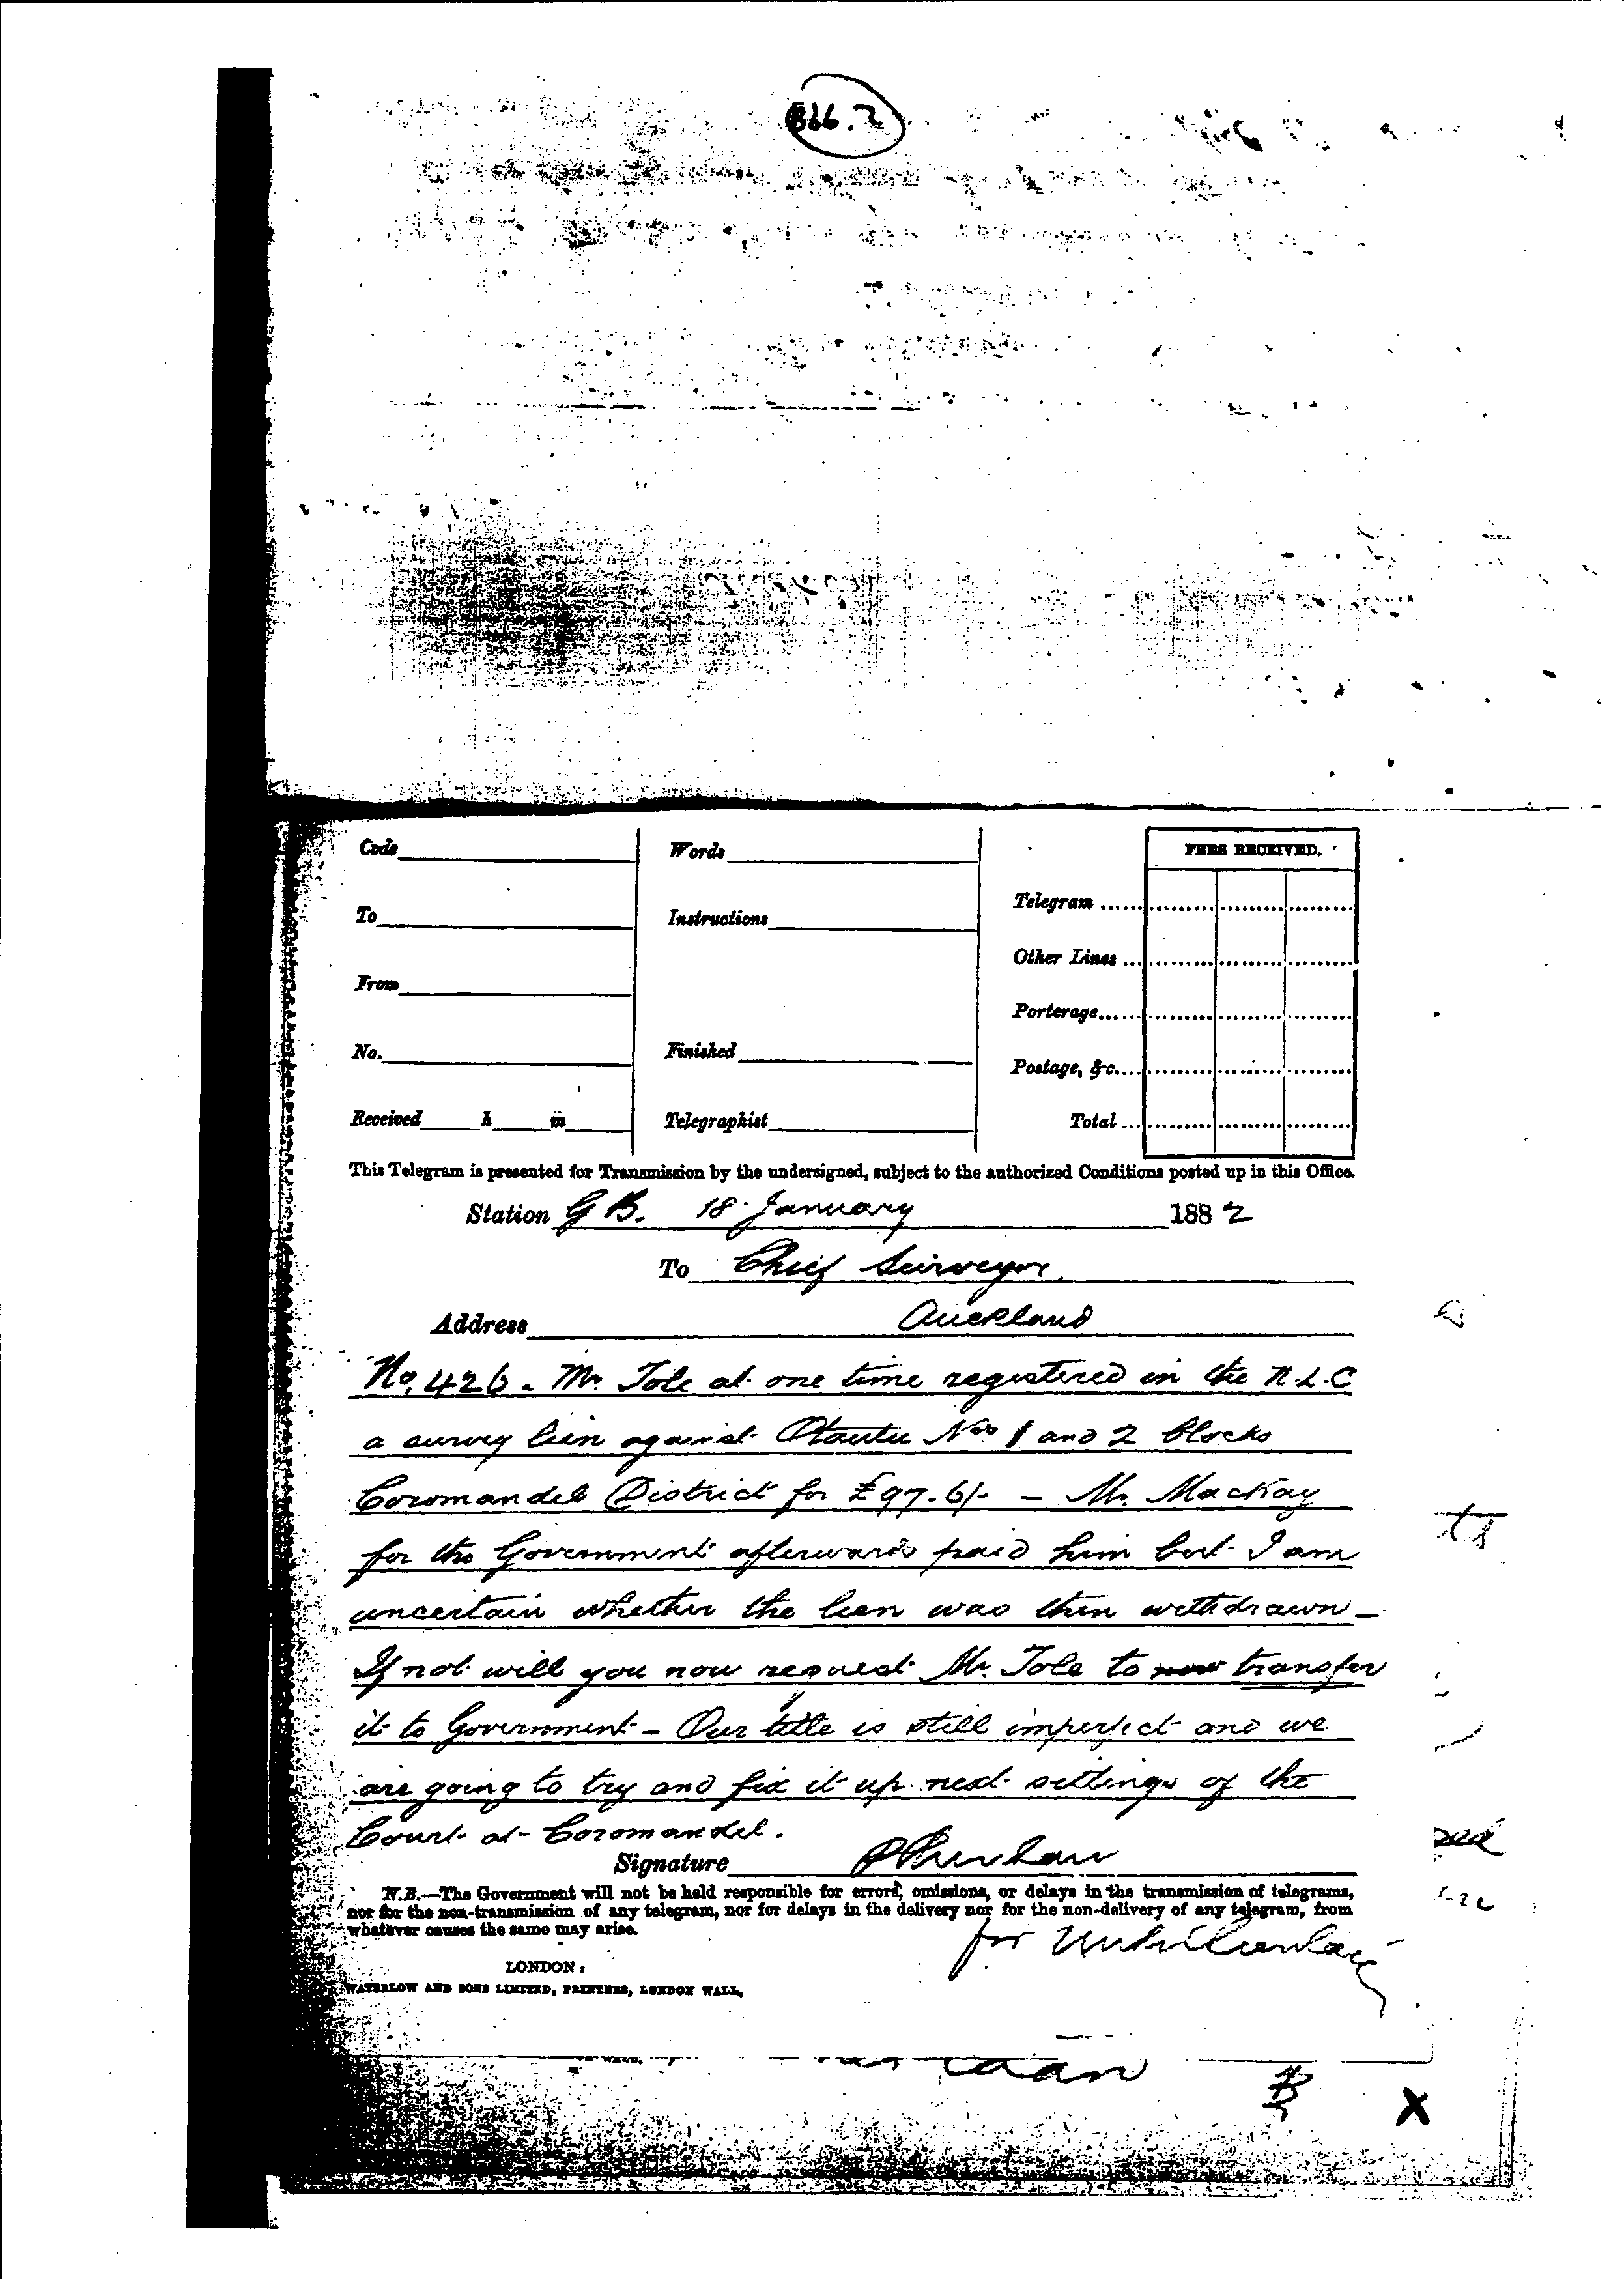 B66.2
Code Words FEES RECEIVED.
Telegram
To Instructions
Other Lines
From
Porterage
No. Finished
Postage, &c.
Received h m Telegraphist Total
This Telegram is presented for Transmission by the undersigned, subject to the authorized Conditions posted up in this Office.
Station G B. 18 January 1882
To Chief Surveyor,
Address Auckland
No. 426. Mr. Tole at one time registered in the N.L.C
a survey lien against Otautu Nos 1 and 2 blocks
Coromandel District for £97.6/- — Mr. Mackay
for the Government afterwards paid him but I am
uncertain whether the lien was then withdrawn —
If not will you now request Mr. Tole to now transfer
it to Government — Our title is still imperfect and we
are going to try and fix it up next sittings of the
Court at Coromandel.
Signature
N.B.—The Government will not be held responsible for errors, omissions, or delays in the transmission of telegrams,
nor for the non-transmission of any telegram, nor for delays in the delivery nor for the non-delivery of any telegram, from
whatever causes the same may arise.
for
LONDON:
WATERLOW AND SONS LIMITED, PRINTERS, LONDON WALL.
X